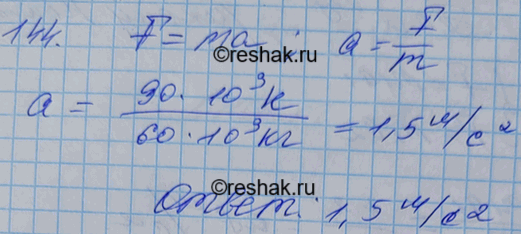 144. F = ma ; a = F/m
©reshak.ru
a = 90 · 10³ Н / 60 · 10³ кг = 1,5 м/с²
©reshak.ru
Ответ: 1,5 м/с²